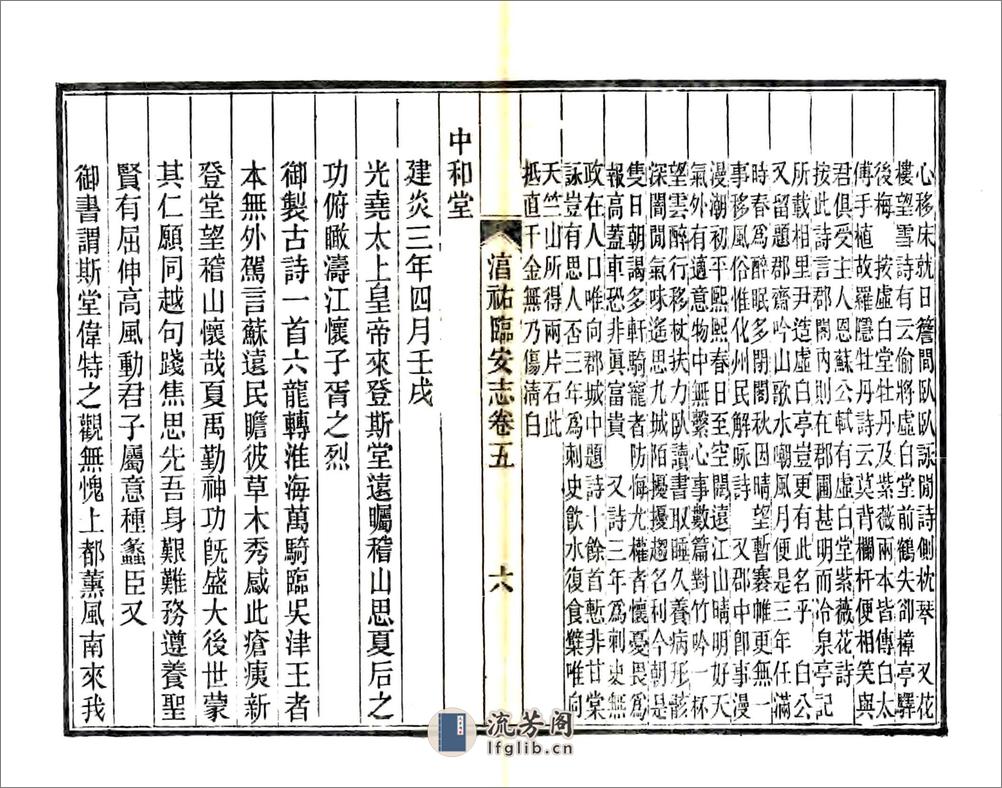 心移床就日簷間臥臥詠閒詩側枕琴　又花
樓望雪詩有云偷將虛白堂前鶴失卻樟亭驛
後梅　按虛白堂牡丹及紫薇兩本皆傳白太
傅手植故羅隱牡丹詩云莫背欄杆便相笑與
君俱受主人恩蘇公軾有虛白堂紫薇花詩
按此詩言郡閣內則在郡圃甚明而冷泉亭記
所載相里尹造虛白亭豈更有此名乎　白公
又留題郡齋吟山歌水嘲風月便是三年任滿
時春爲醉眠多閉閣秋因晴望暫褰帷更無一
事移風俗惟化州民解咏詩　又郡中卽事漫
漫潮初平熙熙春日至空闊遠江山晴明好天
氣外有適意物中無繫心事數篇對竹吟一杯
望雲醉行移杖扶力臥讀書取睡久養病形骸
深閒閒氣味遙思九城陌擾擾趨名利今朝是
隻日朝謁多軒騎寵者防悔尤權者懷憂畏爲
報高蓋車恐非眞富貴　又詩三年爲刺史無
政在人口唯向郡城中題詩十餘首慚非甘棠
詠豈有思人否三年爲刺史飮水復食檗唯向
天竺山所得兩片石此
抵直千金無乃傷淸白
湻祐臨安志卷五　六
中和堂
建炎三年四月壬戌
光堯太上皇帝來登斯堂遠矚稽山思夏后之
功俯瞰濤江懷子胥之烈
御製古詩一首六龍轉淮海萬騎臨吳津王者
本無外駕言蘇遠民瞻彼草木秀感此瘡痍新
登堂望稽山懷哉夏禹勤神功旣盛大後世蒙
其仁願同越句踐焦思先吾身艱難務遵養聖
賢有屈伸高風動君子屬意種蠡臣又
御書謂斯堂偉特之觀無愧上都薰風南來我
流芳阁
lfglib.cn